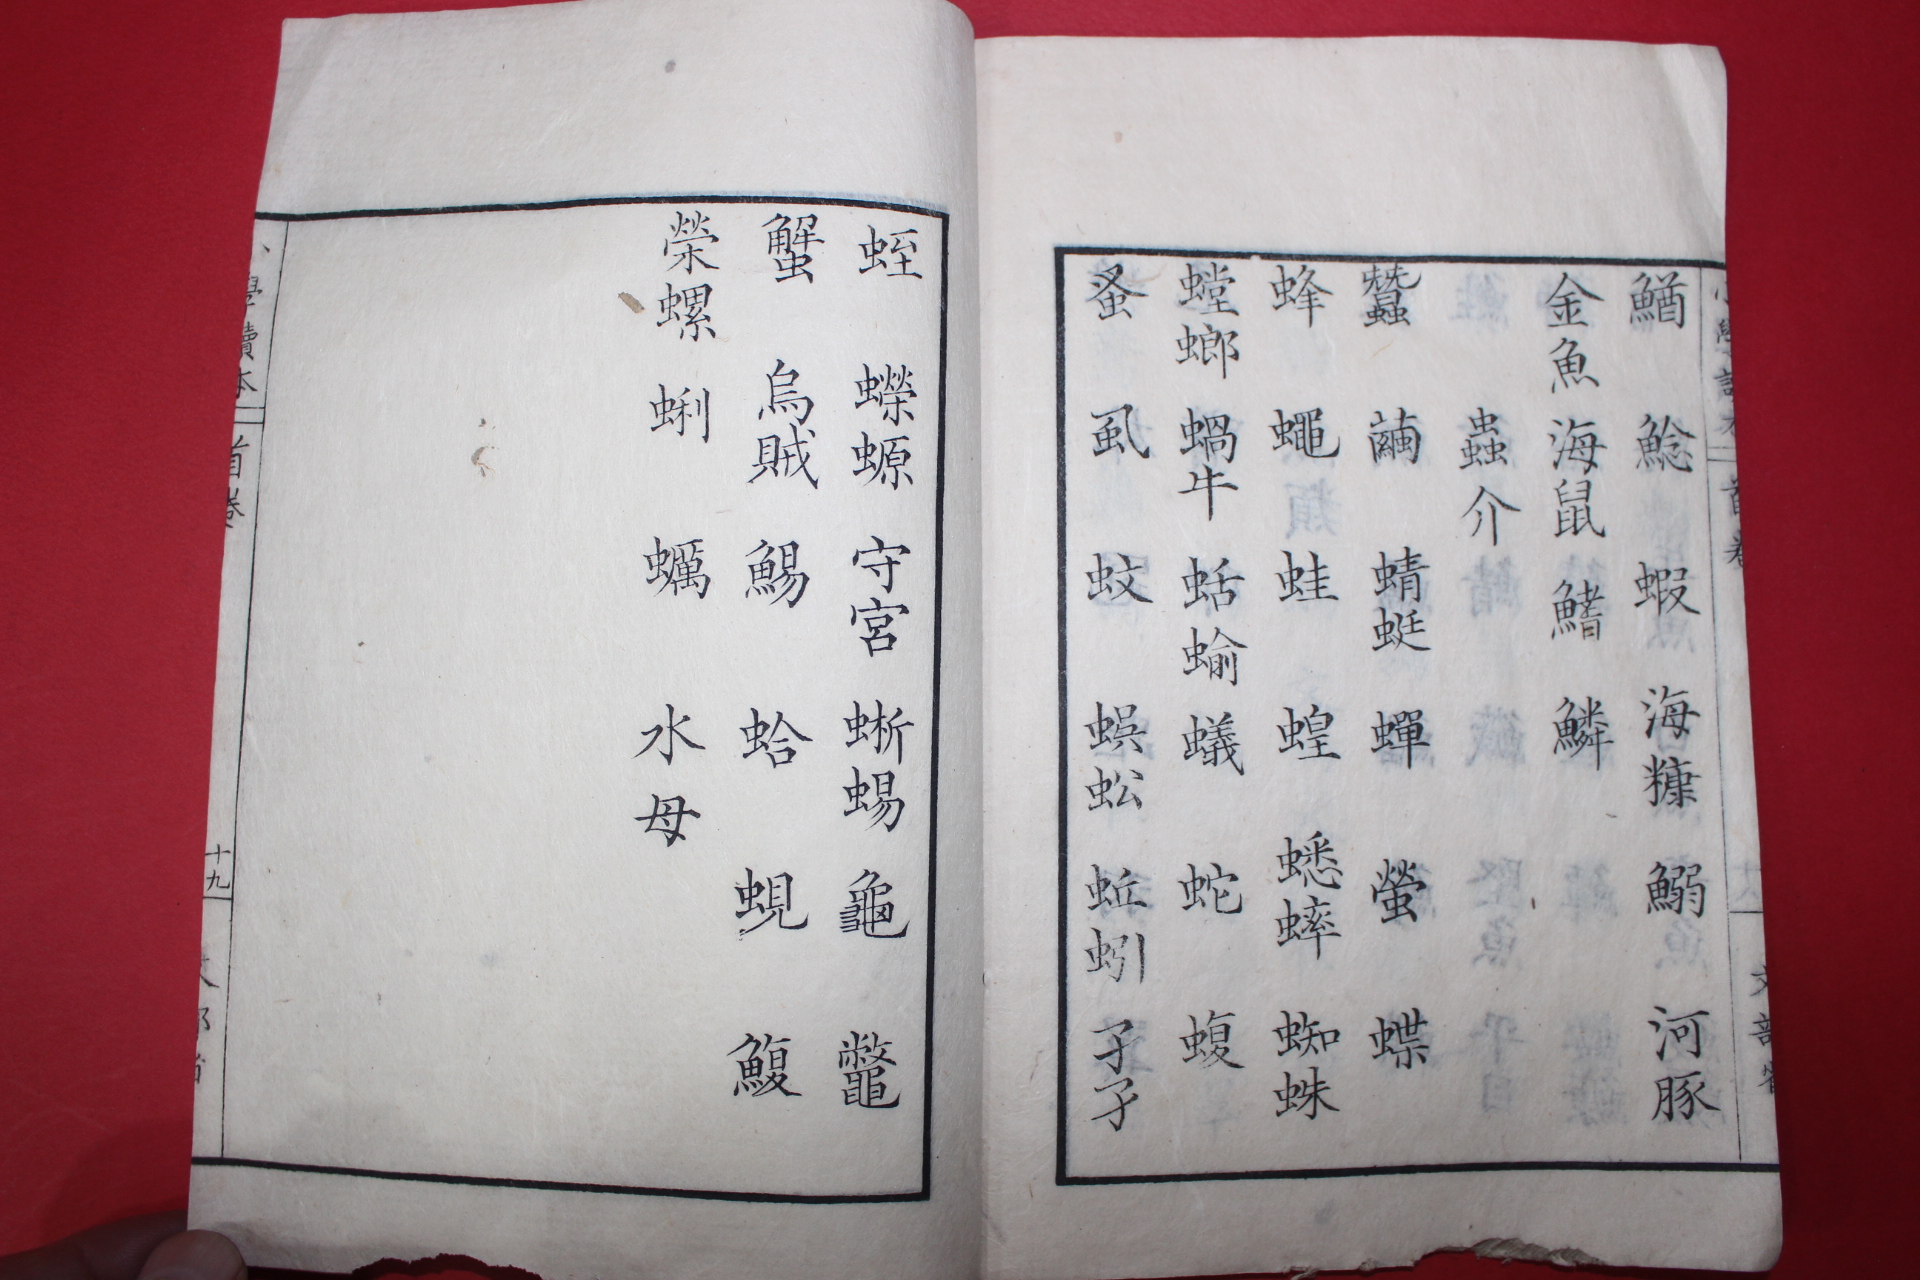 鰌 鯰 蝦 海糠 鰯 河豚
金魚 海鼠 鰭 鱗
蟲介
蠶 繭 蜻蜓 蟬 螢 蝶
蜂 蠅 蛙 蝗 蟋蟀 蜘蛛
螳螂 蝸牛 蛞蝓 蟻 蛇 蝮
蚤 虱 蚊 蜈蚣 蚯蚓 孑孑
文部省
蛭 蠑螈 守宮 蜥蜴 龜 鼈
蟹 烏賊 鯣 蛤 蜆 鰒
榮螺 蜊 蠣 水母
小學讀本 首卷 十九 文部省